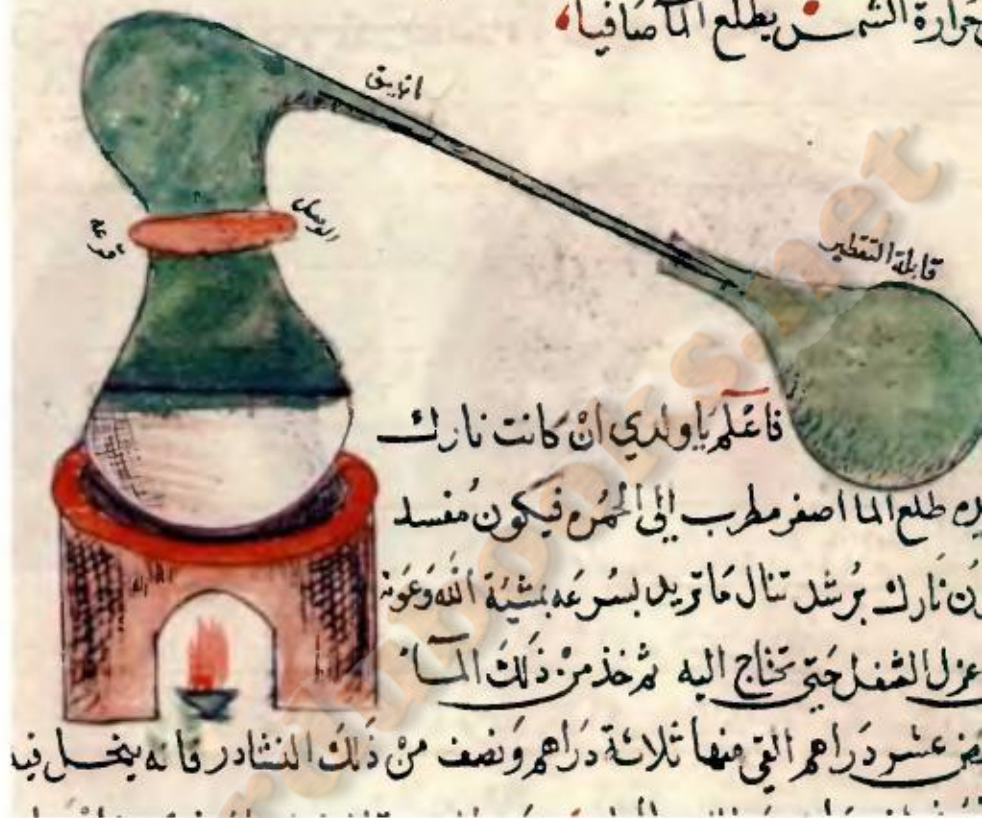 حرارة الشمس يطلع المآ صافياً
انبيق
الوصل
قرعة
قابلة التقطير
فاعْلم يَا ولدي انْ كانت نارك
طلع الما اصفر مطرب إلى الحُمره فيكون مُفسد
نَارك برُشد تنال مَا تريد بسُرعَه بمشيَة الله وَعَونه
عزل الثفل حَتي تحتاج اليه ثم خذ منْ ذَلكَ المآء
عشر دَراهم القي منها ثلاثة دَراهم وَنصف منْ ذَلكَ النشادر فانه ينحل فيه